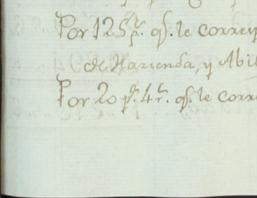 Por 125 p.s q.e le corresp
de Hazienda, y Abil
Por 20 p.s 4 r.s q.e le corre